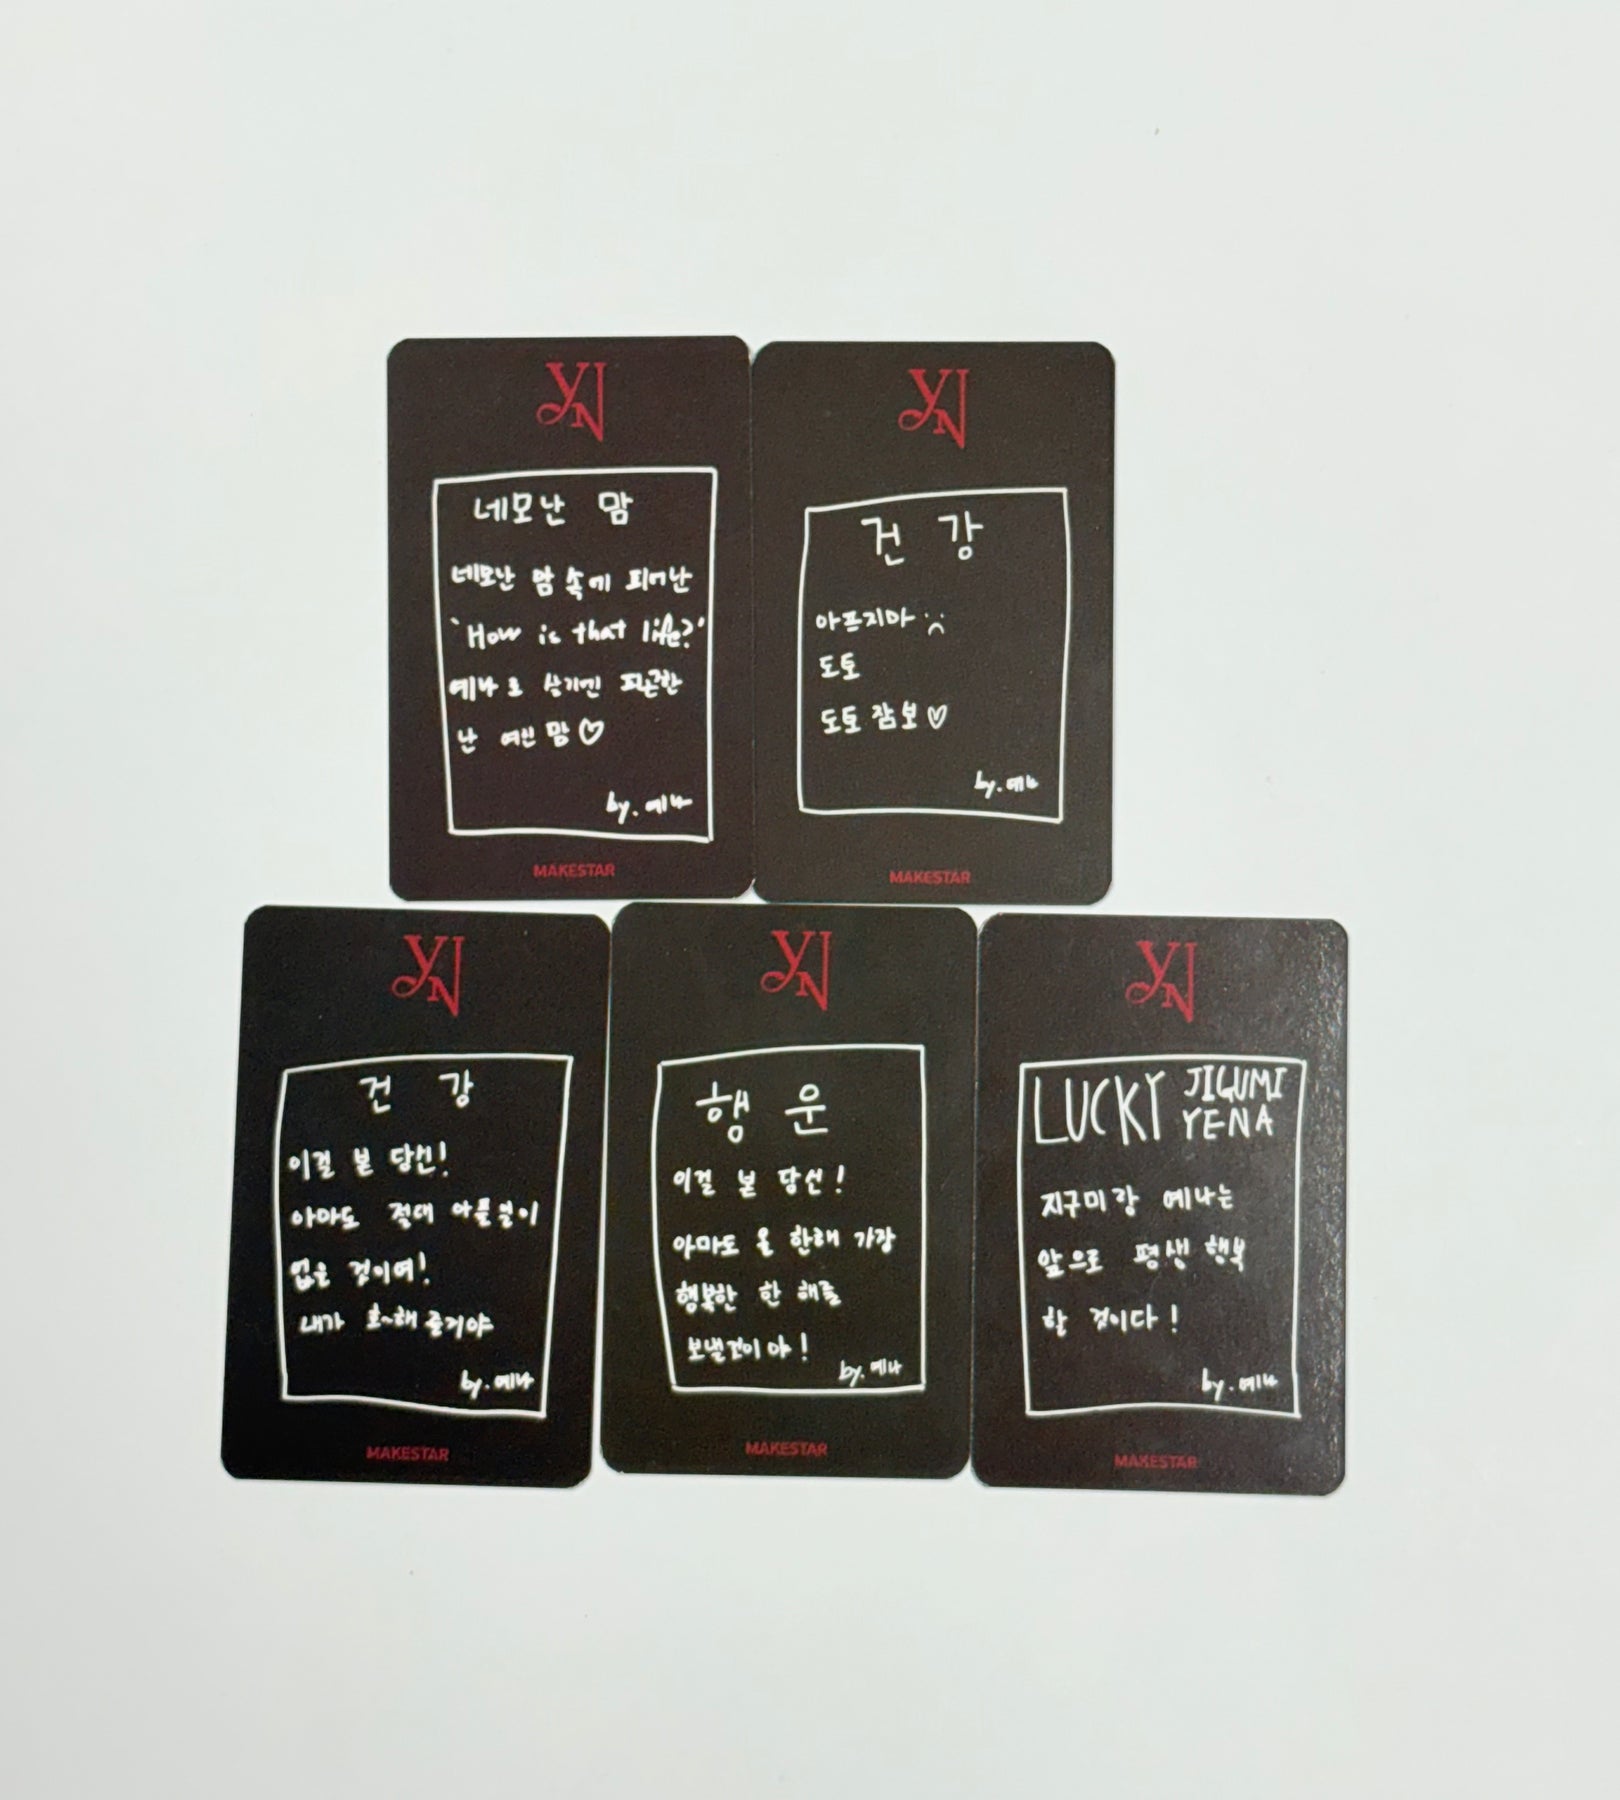 YN
네모난 맘
네모난 맘 속에 피어난
'How is that life?'
예나로 살기엔 피곤한
난 여린 맘♡
by. 예나
MAKESTAR
YN
건 강
아프지마 :(
도토
도토 잠보♡
by. 예나
MAKESTAR
YN
건 강
이걸 본 당신!
아마도 절대 아플일이
없을 것이여!
내가 호~해 줄거야
by. 예나
MAKESTAR
YN
행 운
이걸 본 당신!
아마도 올 한해 가장
행복한 한 해를
보낼것이야!
by. 예나
MAKESTAR
YN
LUCKY JIGUMI YENA
지구미랑 예나는
앞으로 평생 행복
할 것이다!
by. 예나
MAKESTAR